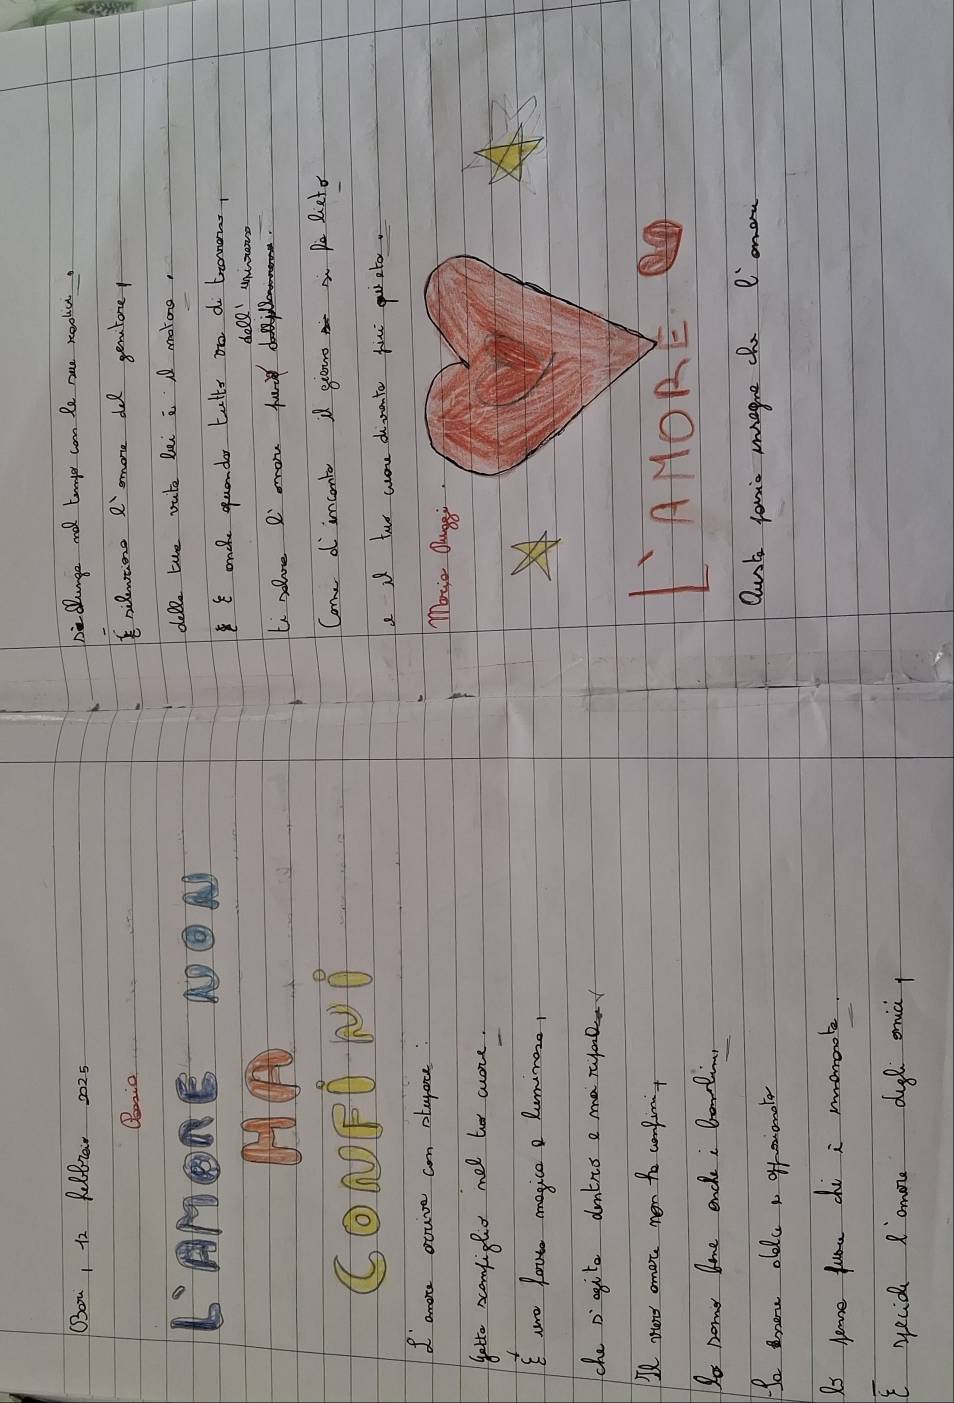 Bari, 12 febbraio 2025
Poesia
L'AMORE NON
HA
CONFINI
L'amore arriva con stupore:
getta scompiglio nel tuo cuore.
È una forza magica e luminosa,
che s'agita dentro e mai riposa.
Il vero amore non ha confini,
lo sanno bene anche i bambini,
fa essere dolce e appassionato
lo pensa pure chi è innamorato.
È speciale l'amore degli amici,
si allunga nel tempo con le sue radici.
È silenzioso l'amore del genitore,
della tua vita lui è il motore.
E anche quando tutto va di traverso,
dell'universo
ti salva l'amore
Come d'incanto il giorno si fa lieto
e il tuo cuore diventa più quieto.
Maria Ruggi.
L'AMORE
Questa poesia insegna che l'amore